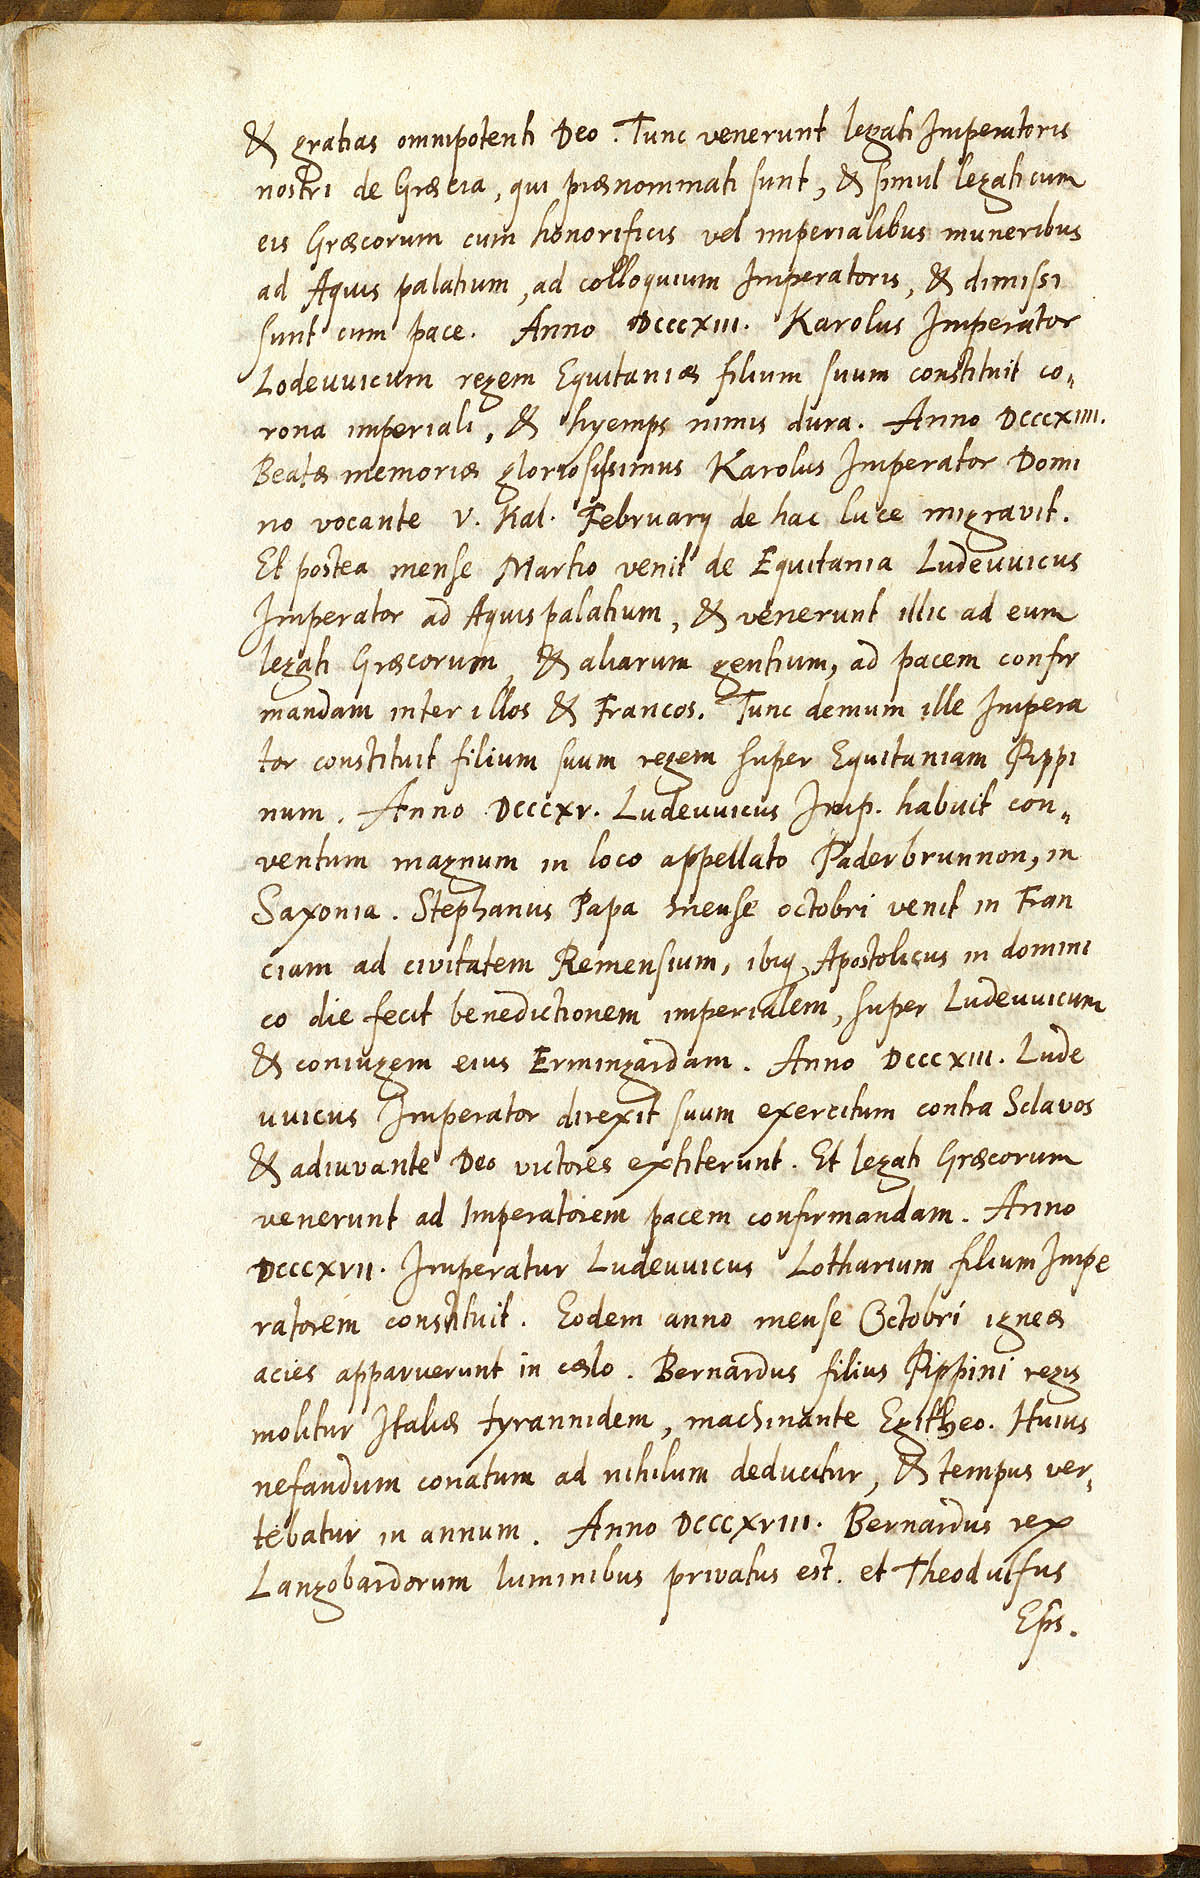 & gratias omnipotenti Deo. Tunc venerunt legati Imperatoris
nostri de Græcia, qui prænominati sunt, & simul legati cum
eis Græcorum cum honorificis vel imperialibus muneribus
ad Aquis palatium, ad colloquium Imperatoris, & dimissi
sunt cum pace. Anno DCCCXIII. Karolus Imperator
Lodeuuicum regem Equitaniæ filium suum constituit co„
rona imperiali, & hyemps nimis dura. Anno DCCCXIIII.
Beatæ memoriæ gloriosissimus Karolus Imperator Domi
no vocante V. Kal. Februarij de hac luce migravit.
Et postea mense Martio venit de Equitania Ludeuuicus
Imperator ad Aquis palatium, & venerunt illic ad eum
legati Græcorum, & aliarum gentium, ad pacem confir
mandam inter illos & Francos. Tunc demum ille Impera
tor constituit filium suum regem super Equitaniam Pippi
num. Anno DCCCXV. Ludeuuicus Imp. habuit con„
ventum magnum in loco appellato Paderbrunnon, in
Saxonia. Stephanus Papa mense octobri venit in Fran
ciam ad civitatem Remensium, ibiq Apostolicus in domini
co die fecit benedictionem imperialem, super Ludeuuicum
& coniugem eius Ermingardam. Anno DCCCXIII. Lude
uuicus Imperator direxit suum exercitum contra Sclavos
& adiuvante Deo victores extiterunt. Et legati Græcorum
venerunt ad Imperatorem pacem confirmandam. Anno
DCCCXVII. Imperatur Ludeuuicus Lotharium filium Impe
ratorem constituit. Eodem anno mense Octobri igneæ
acies apparuerunt in cælo. Bernardus filius Pippini regis
molitur Italiæ tyrannidem, machinante Egitheo. Huius
nefandum conatum ad nihilum deducitur, & tempus ver„
tebatur in annum. Anno DCCCXVIII. Bernardus rex
Langobardorum luminibus privatus est. et Theodulfus
Eps.